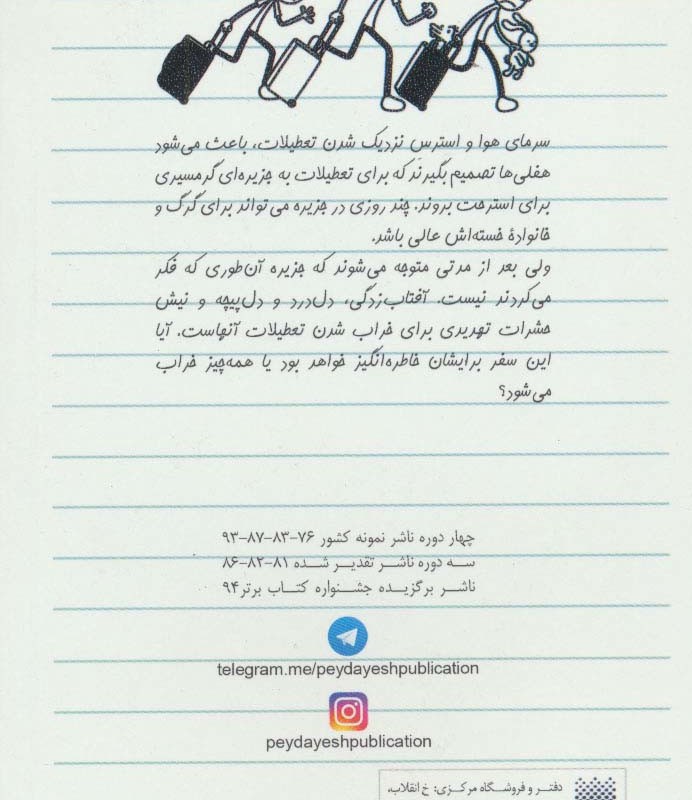 سرمای هوا و استرس نزدیک شدن تعطیلات، باعث می‌شود
هفلی‌ها تصمیم بگیرند که برای تعطیلات به جزیره‌ای گرمسیری
برای استرحت بروند. چند روزی در جزیره می‌تواند برای گرگ و
خانوادهٔ خسته‌اش عالی باشد.
ولی بعد از مدتی متوجه می‌شوند که جزیره آن‌طوری که فکر
می‌کردند نیست. آفتاب‌زدگی، دل‌درد و دل‌پیچه و نیش
حشرات تهدیدی برای خراب شدن تعطیلات آنهاست. آیا
این سفر برایشان خاطره‌انگیز خواهد بود یا همه‌چیز خراب
می‌شود؟
چهار دوره ناشر نمونه کشور ۷۶-۸۳-۸۷-۹۳
سه دوره ناشر تقدیر شده ۸۱-۸۲-۸۶
ناشر برگزیده جشنواره کتاب برتر ۹۴
telegram.me/peydayeshpublication
peydayeshpublication
دفتر و فروشگاه مرکزی: خ انقلاب،